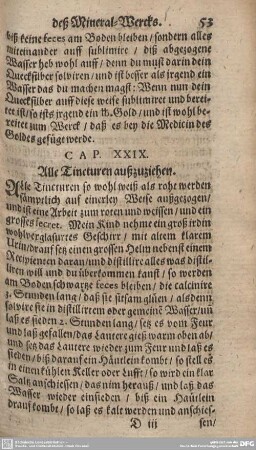 deß Mineral-Wercks. 53
biß keine feces am Boden bleiben/ sondern alles
miteinander auff sublimire / diß abgezogene
Wasser heb wohl auff/ denn du must darin dein
Quecksilber solviren/ und ist besser als irgend ein
Wasser das du machen magst: Wenn nun dein
Quecksilber auff diese weise sublimiret und berei-
tet ist/ so ists irgend ein Gold/ und ist wohl be-
reitet zum Werck/ daß es bey die Medicin des
Goldes gefüge werde.
CAP. XXIX.
Alle Tincturen außzuziehen.
Alle Tincturen so wohl weiß als rohe werden
sämptlich auf einerley Weise außgezogen/
und ist eine Arbeit zum roten und weissen/ und ein
grosses secret. Mein Kind nehme ein groß irdin
wohlverglasurtes Geschirr/ mit altem klarem
Urin/ drauf setz einen grossen Helm nebenst einem
Recipienten daran/ und distillire alles was distil-
liren will und du überkommen kanst/ so werden
am Boden schwartze feces bleiben/ die calcinire
3. Stunden lang/ daß sie sitsam glüen/ alsdenn
solvire sie in distillirtem oder gemeinē Wasser/ uñ
laß es sieden 2. Stunden lang/ setz es vom Feur
und laß gefallen/ das Lautere gieß warm oben ab/
und setz das Lautere wieder zum Feur und laß es
sieden/ biß darauf ein Häutlein komt/ so stell es
in einen kühlen Keller oder Lufft/ so wird ein klar
Saltz anschiesen/ das nim herauß/ und laß das
Wasser wieder einsieden / biß ein Häutlein
drauf komt/ so laß es kalt werden und anschies-
D iij sen/